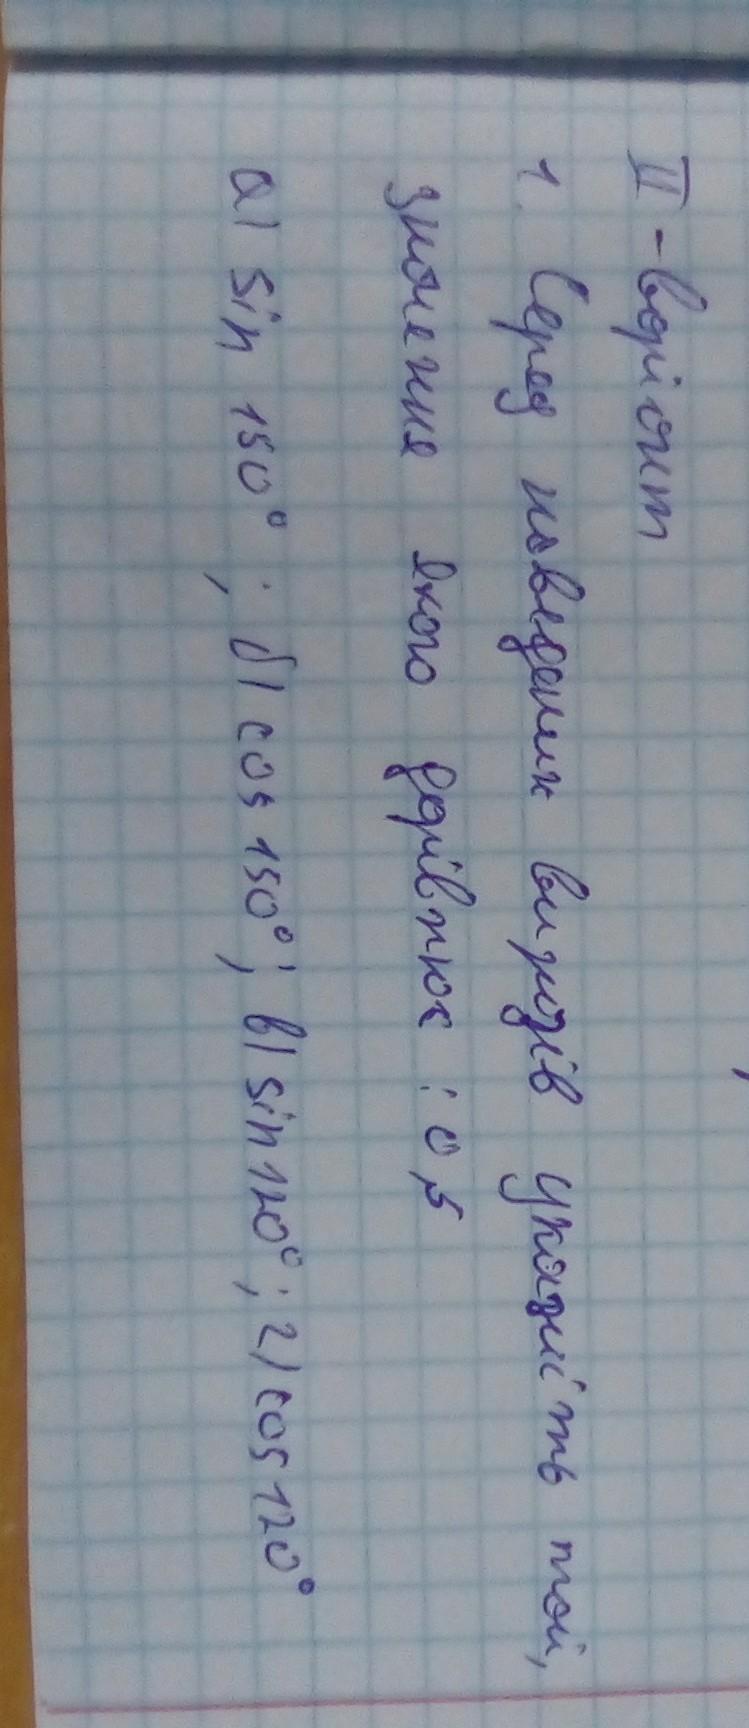 II - варіант
1. Серед наведених виразів укажіть той,
значення якого дорівнює : 0,5
а) sin 150° ; б) cos 150° ; в) sin 120° ; г) cos 120°